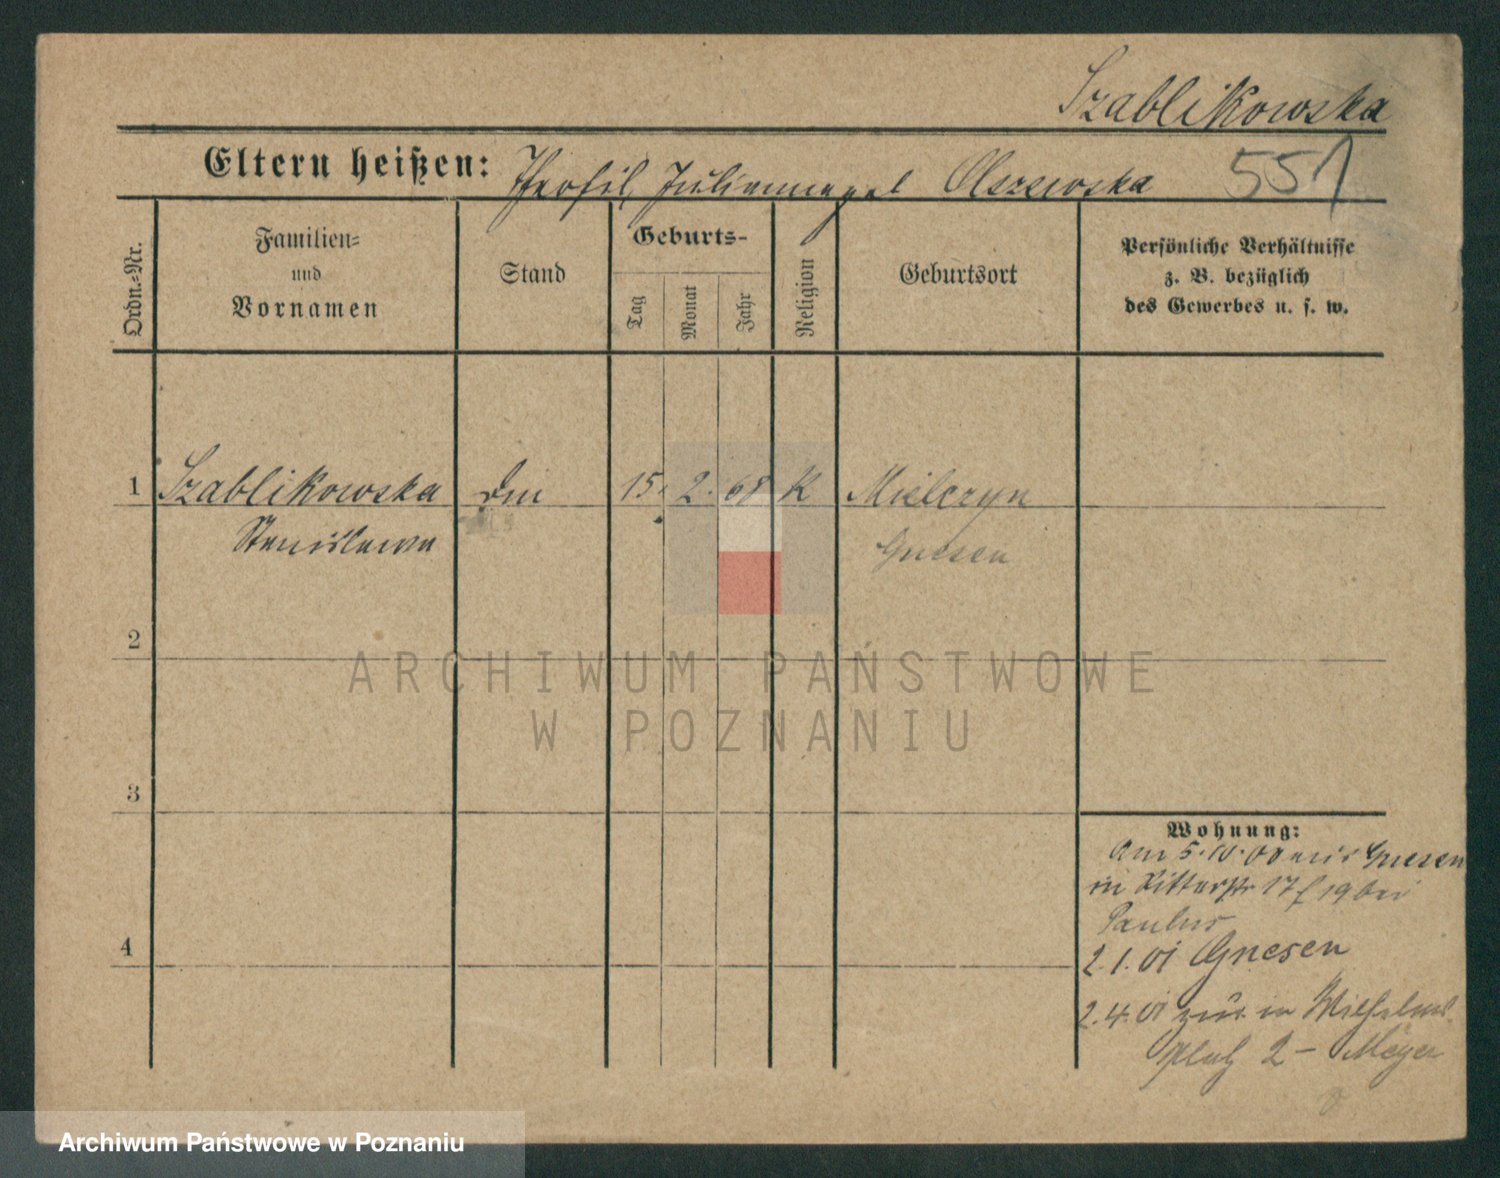 Szablikowska
Eltern heißen: Theofil, Julianna geb Olszewska 551
Ordn.=Nr.
Familien=
und
Vornamen
Stand
Geburts-
Tag
Monat
Jahr
Religion
Geburtsort
Persönliche Verhältnisse
z. B. bezüglich
des Gewerbes u. s. w.
1 Szablikowska 15. 2. 68 K Mielczyn
Stanislawa Gnesen
2
3
4
Wohnung:
Am 5.10.00 aus Gnesen
in Ritterstr 17/19 bei
Paulus
2.1.01 Gnesen
2.4.01 zur. in Wilhelms
platz 2 – Meyer
ARCHIWUM PAŃSTWOWE
W POZNANIU
Archiwum Państwowe w Poznaniu